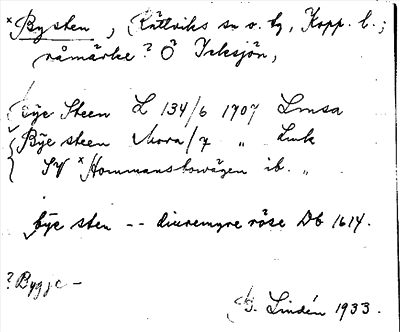 × Bysten, Rättviks sn o. tg, Kopp. l.;
råmärke? Ö Icksjön,
Bÿe Steen L 134/6 1707 Lmsa
Bÿe steen Mora/7 " Luk
SV × Hommansbowägen ib. "
bÿe sten -- diuremyre röse Db 1614.
? Bygge-
G. Lindén 1933.